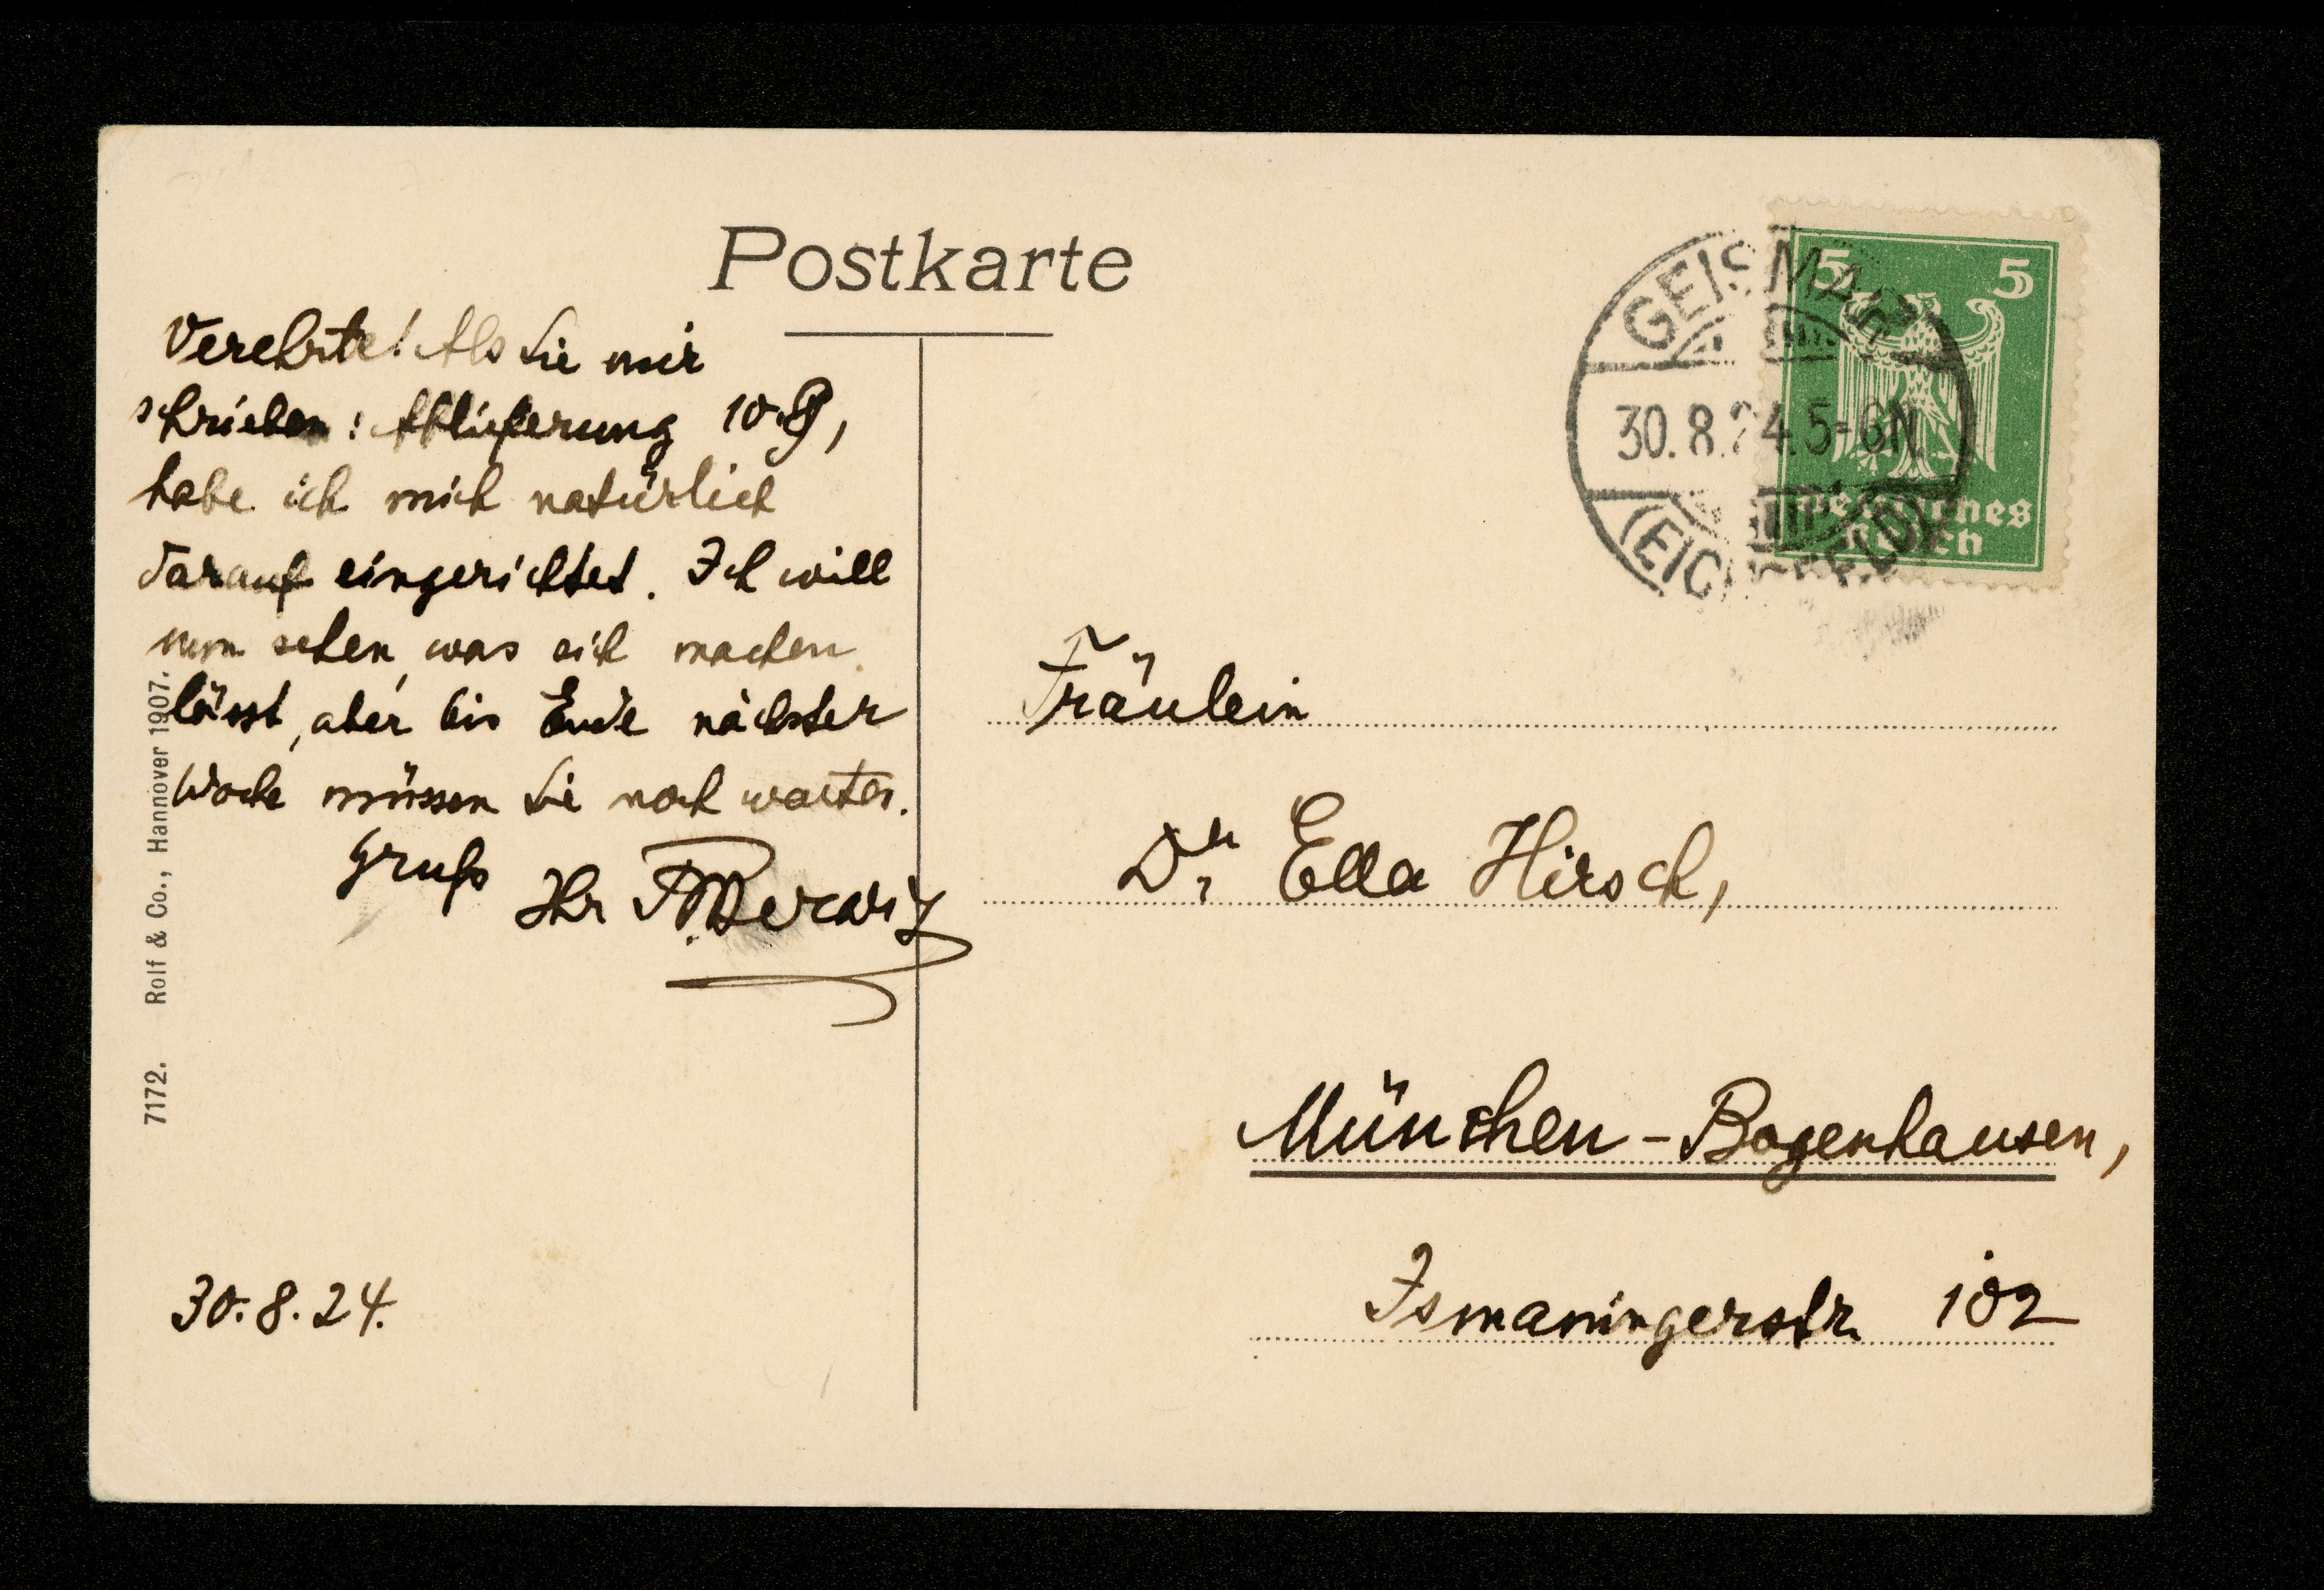 Postkarte
Verehrte! Als Sie mir
schrieben: Ablieferung 10.9,
habe ich mich natürlich
darauf eingerichtet. Ich will
nun sehen, was sich machen
lässt, aber bis Ende nächster
Woche müssen Sie noch warten.
Gruß
Ihr
30.8.24.
7172. Rolf & Co., Hannover 1907.
GEISMAR
30.8.24.5-6N
(EICHSFELD)
5 5
Deutsches
Reich
Fräulein
Dr. Ella Hirsch,
München-Bogenhausen,
Ismaningerstr. 102